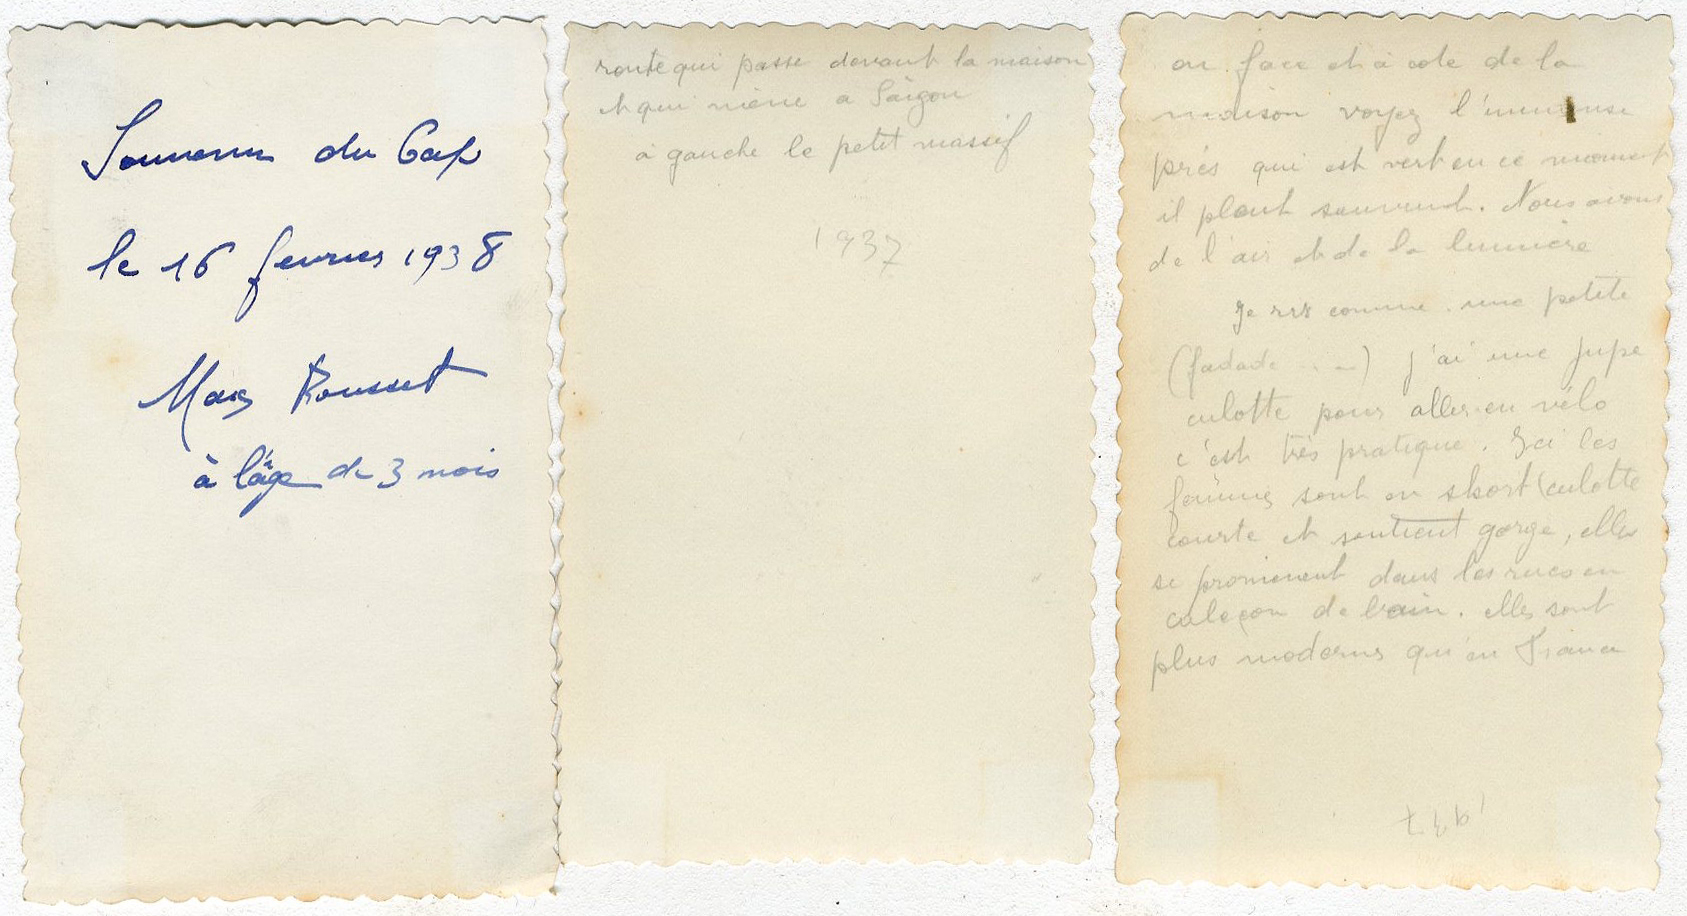 Souvenir du Cap
le 16 fevrier 1938
Max Rousset
à l'âge de 3 mois
route qui passe devant la maison
et qui mène a Saïgon
à gauche le petit massif
1937
en face et à cote de la
maison voyez l'immense
près qui est vert en ce moment
il pleut souvent. Nous avons
de l'air et de la lumière
Je suis comme une petite
( ) j'ai une jupe
culotte pour aller en vélo
c'est très pratique. Ici les
femmes sont en short (culotte
courte et soutient gorge, elles
se promenent dans les rues en
caleçon de bain. elles sont
plus modernes qu'en France
1937